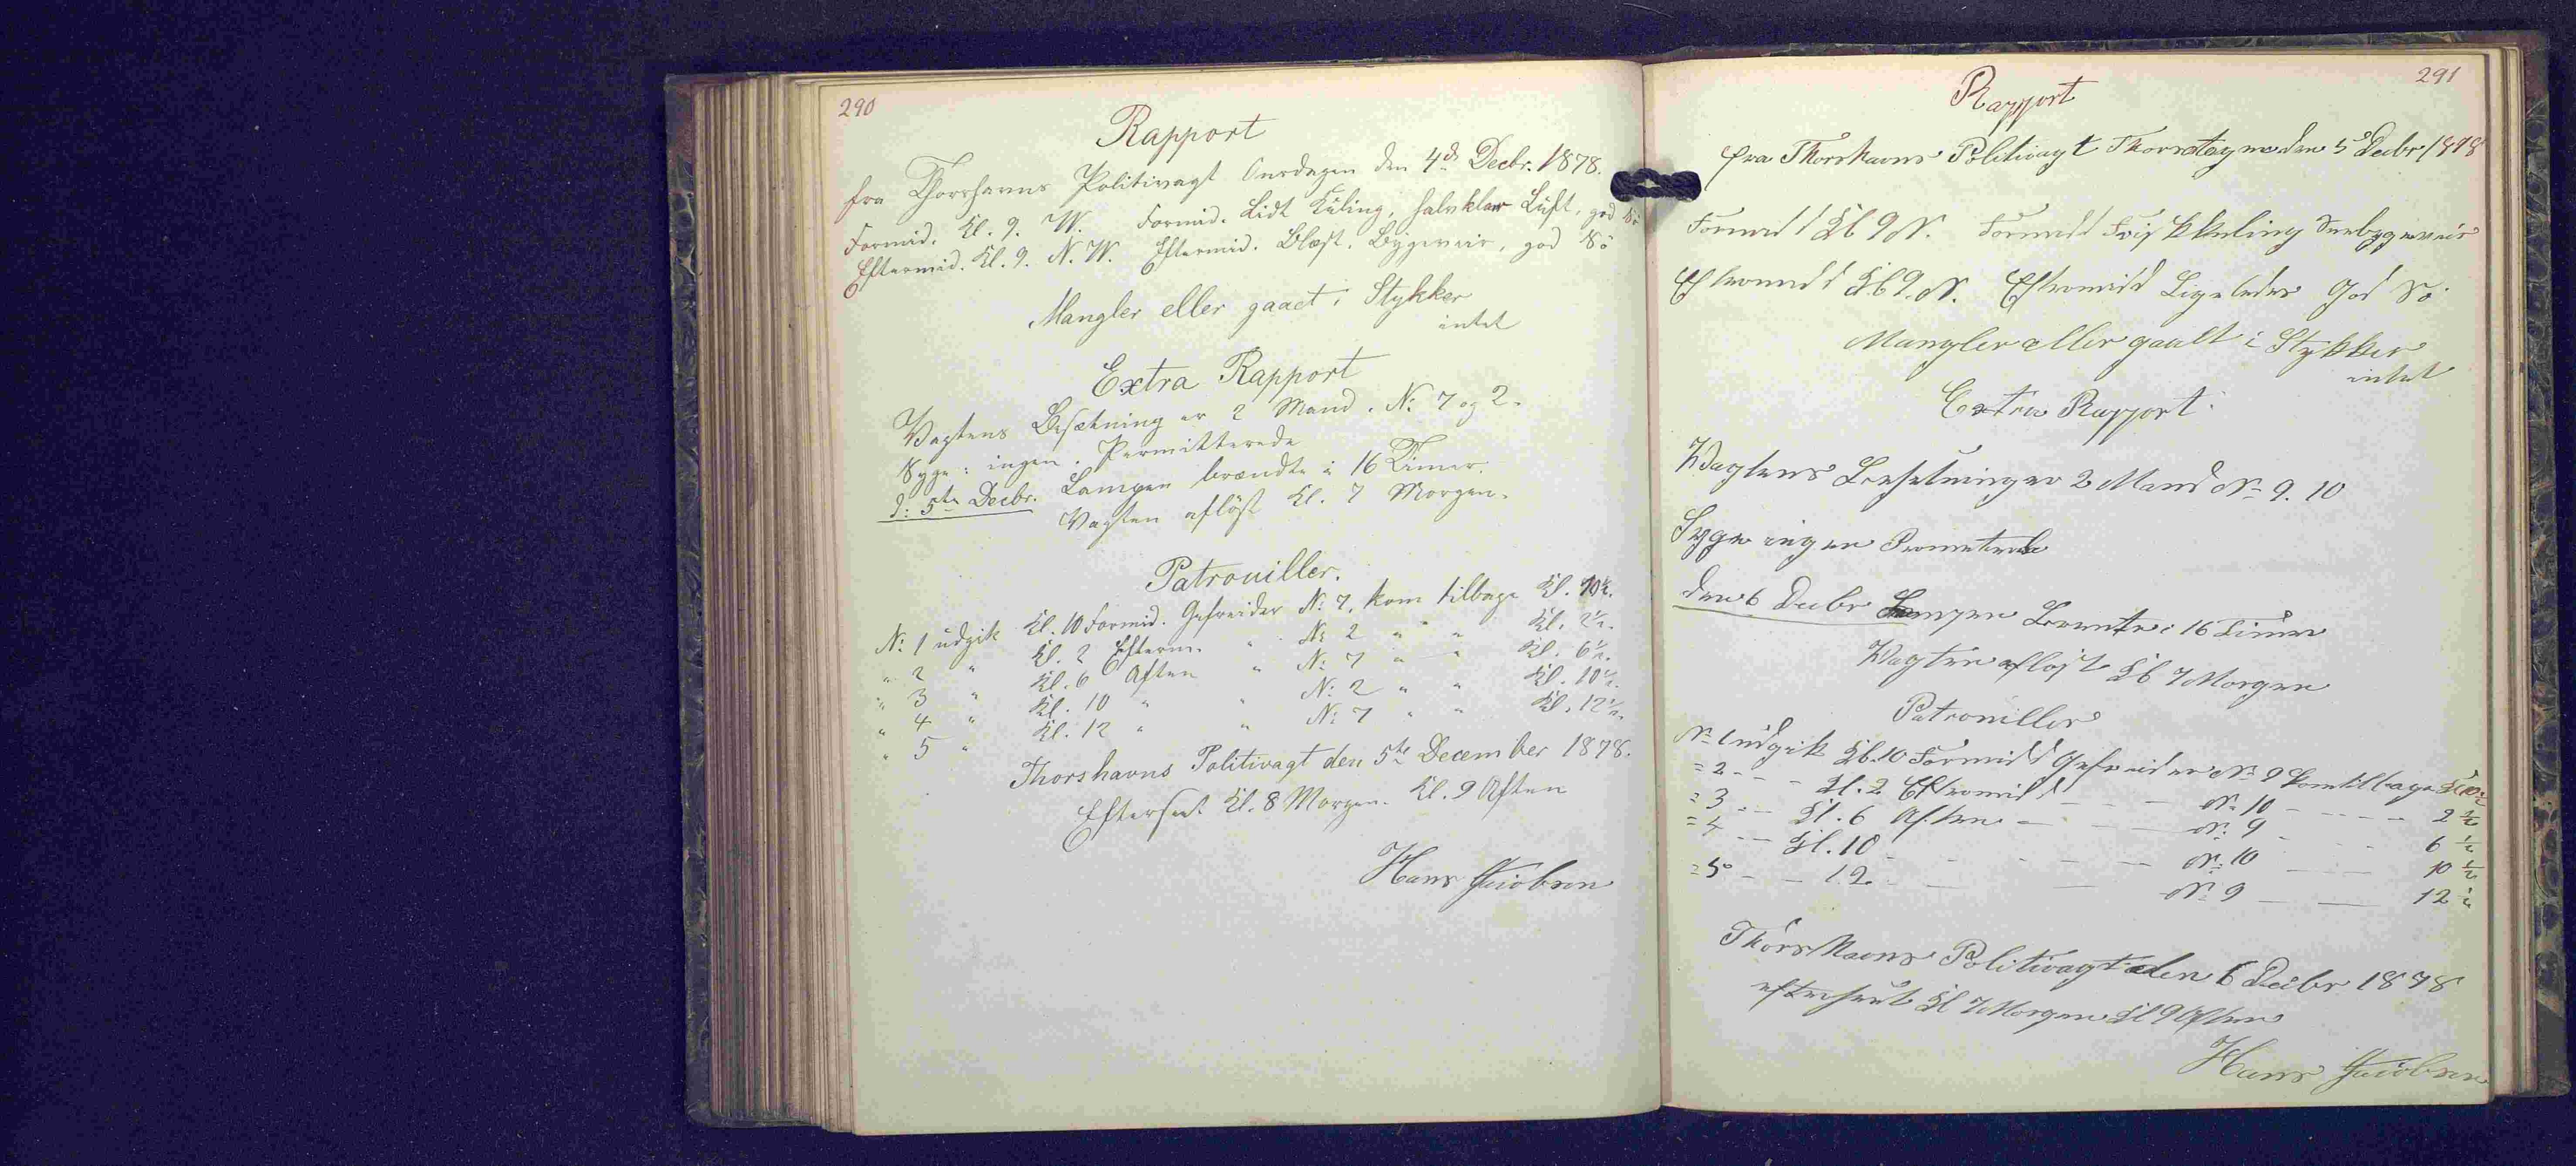 290
Rapport
fra Thorshavns Politivagt Onsdagen den 4de Decbr. 1878.
Formid. Kl. 9. W. Formid. Lidt Kuling, halvklar Luft, god Sö
Eftermid. Kl. 9. N.W. Eftermid. Blæst. Bygeveir, god Sö
Mangler eller gaaet i Stykker
intet
Extra Rapport
Vagtens Besætning er 2 Mand. No 7 og 2.
Syge: ingen. Permitterede
d: 5te Decbr. Lampen brændte i 16 Timer.
Vagten aflöst Kl. 7 Morgen.
Patrouiller.
No 1 udgik Kl. 10 Formid. Gefreider No 7. kom tilbage Kl. 10½.
" 2 " Kl. 2 Efterm. " No 2 " " Kl. 2½.
" 3 " Kl. 6 Aften " No 7 " " Kl. 6½.
" 4 " Kl. 10 " " No 2 " " Kl. 10½.
" 5 " Kl. 12 " " No 7 " " Kl. 12½.
Thorshavns Politivagt den 5te December 1878.
Efterseet Kl. 8 Morgen. Kl. 9 Aften
Hans Jacobsen
291
Rapport
fra Thorshavns Politivagt Thorsdagen den 5 Decbr 1878
Formidd Kl 9 N. Formidd Frisk Kuling Sneebygeveir
Eftermidd Kl. 9. N. Eftermidd Ligeledes God Sö
Mangler eller gaaet i Stykker
intet
Extra Rapport
Vagtens Besetning er 2 Mand No 9. 10
Syge ingen
den 6 Decbr Lampen Brente i 16 Timer
Vagten aflöst Kl 7 Morgen
Patrouiller
No 1 udgik Kl. 10 Formidd Gefreider No 9 kom tilbage Kl 10½
= 2 - - - Kl. 2 Eftermidd - - - No 10 - - - - 2½
= 3 - - - Kl. 6 Aften - - - No 9 - - - 6½
= 4 - - Kl. 10 - - - - No 10 - - - 10½
= 5 - - - 12 - - - No 9 - - 12½
Thorshavns Politivagt den 6 Decbr 1878
efterseet Kl 7 Morgen Kl 9 Aften
Hans Jacobsen